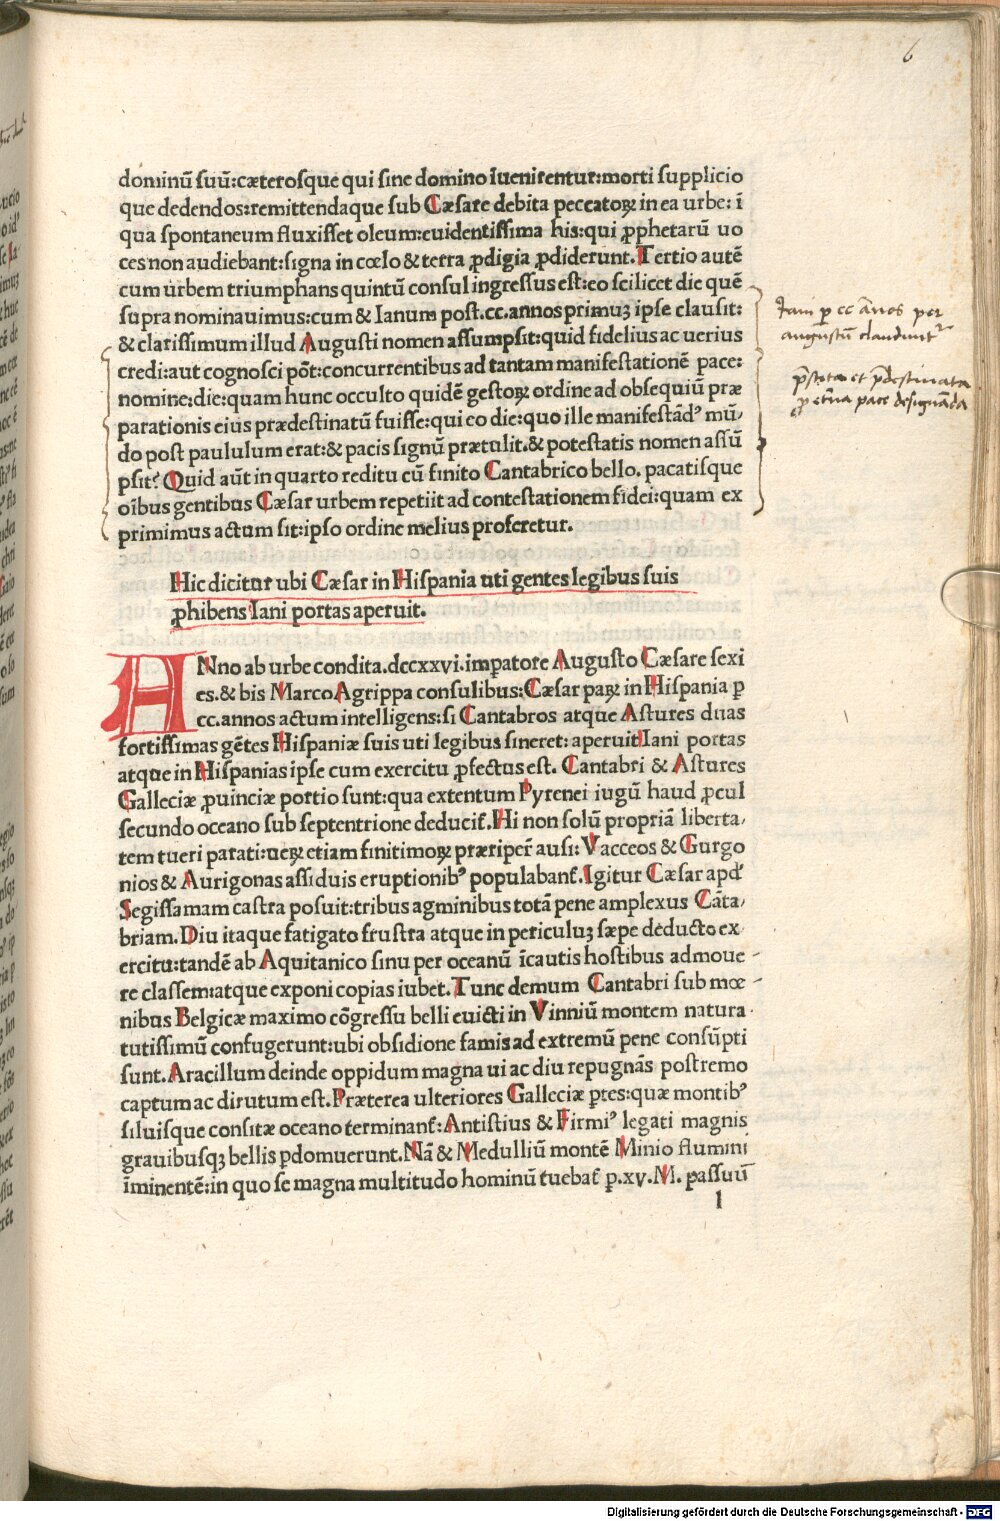 6
dominū suū:cæterosque qui sine domino iuenirentur:morti supplicio
que dedendos:remittendaque sub Cæsare debita peccatoꝝ in ea urbe: ī
qua spontaneum fluxisset oleum:euidentissima his:qui ꝓphetarū uo
ces non audiebant:signa in cœlo & terra ꝓdigia ꝓdiderunt.Tertio autē
cum urbem triumphans quintū consul ingressus est:eo scilicet die quē
supra nominauimus:cum & Ianum post.cc.annos primuꝫ ipse clausit:
& clarissimum illud Augusti nomen assumpsit:quid fidelius ac uerius
credi:aut cognosci pōt:concurrentibus ad tantam manifestationē pace:
nomine:die:quam hunc occulto quidē gestoꝝ ordine ad obsequiū præ
parationis eius prædestinatū fuisse:qui eo die:quo ille manifestād᾽ mū,
do post paululum erat:& pacis signū prætulit.& potestatis nomen assū
psit? Quid aūt in quarto reditu cū finito Cantabrico bello. pacatisque
oībus gentibus Cæsar urbem repetiit ad contestationem fidei:quam ex
primimus actum sit:ipso ordine melius proferetur.
Iani ꝑ cc ānos per
augustū clauduntʳ
Hic dicitur ubi Cæsar in Hispania uti gentes legibus suis
ꝓhibens Iani portas aperuit.
ANno ab urbe condita.dccxxvi.imꝑatore Augusto Cæsare sexi
es.& bis Marco Agrippa consulibus:Cæsar paꝝ in Hispania ꝑ
cc.annos actum intelligens:si Cantabros atque Astures duas
fortissimas gētes Hispaniæ suis uti legibus sineret: aperuit Iani portas
atque in Hispanias ipse cum exercitu ꝓfectus est. Cantabri & Astures
Galleciæ ꝓuinciæ portio sunt:qua extentum Pyrenei iugū haud ꝓcul
secundo oceano sub septentrione deducit̄. Hi non solū propriā liberta,
tem tueri parati:ueꝝ etiam finitimoꝝ præriper̄ ausi: Vacceos & Gurgo
nios & Aurigonas assiduis eruptionib᾽ populabant̄. Igitur Cæsar apd᾽
Segissamam castra posuit:tribus agminibus totā pene amplexus Cāta,
briam.Diu itaque fatigato frustra atque in periculuꝫ sæpe deducto ex
ercitu:tandē ab Aquitanico sinu per oceanū īcautis hostibus admoue
re classem:atque exponi copias iubet. Tunc demum Cantabri sub mœ
nibus Belgicæ maximo cōgressu belli euicti in Vinniū montem natura
tutissimū confugerunt:ubi obsidione famis ad extremū pene consūpti
sunt. Aracillum deinde oppidum magna ui ac diu repugnās postremo
captum ac dirutum est. Præterea ulteriores Galleciæ ꝑtes:quæ montib᾽
siluisque consitæ oceano terminant̄: Antistius & Firmi᾽ legati magnis
grauibusqꝫ bellis ꝑdomuerunt. Nā & Medulliū montē Minio flumini
īminentē:in quo se magna multitudo hominū tuebat̄ ꝑ.xv.M. passuū
l
Digitalisierung gefördert durch die Deutsche Forschungsgemeinschaft - DFG